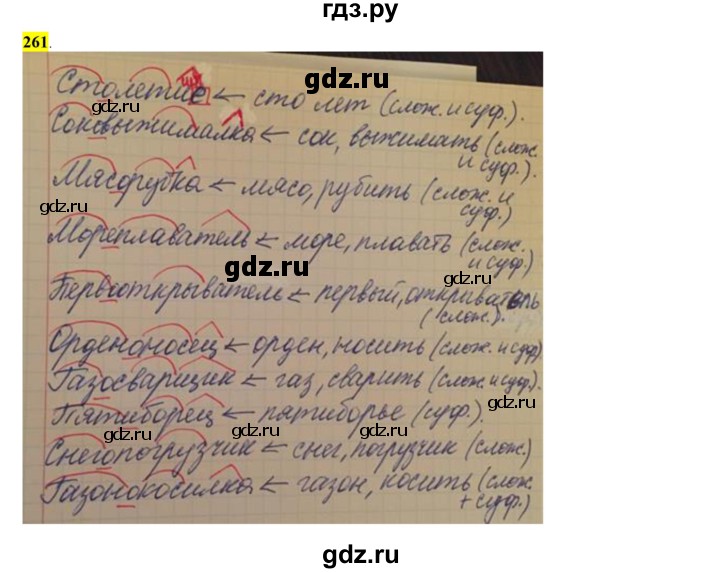 гдз.ру
261.
gdz.ru
Столетие ← сто лет (слож. и суф.).
gdz.ru
Соковыжималка ← сок, выжимать (слож.
и суф.).
gdz.ru
Мясорубка ← мясо, рубить (слож. и
суф.)
gdz.ru
gdz.ru
Мореплаватель ← море, плавать (слож.
и суф.)
gdz.ru
gdz.ru
Первооткрыватель ← первый, открыватель
(слож.).
gdz.ru
gdz.ru
Орденоносец ← орден, носить (слож. и суф)
gdz.ru
Газосварщик ← газ, сварить (слож. и суф.).
gdz.ru
Пятиборец ← пятиборье (суф.).
gdz.ru
gdz.ru
gdz.ru
Снегопогрузчик ← снег, погрузчик (слож.)
gdz.ru
gdz.ru
Газонокосилка ← газон, косить (слож.
+ суф.)
gdz.ru